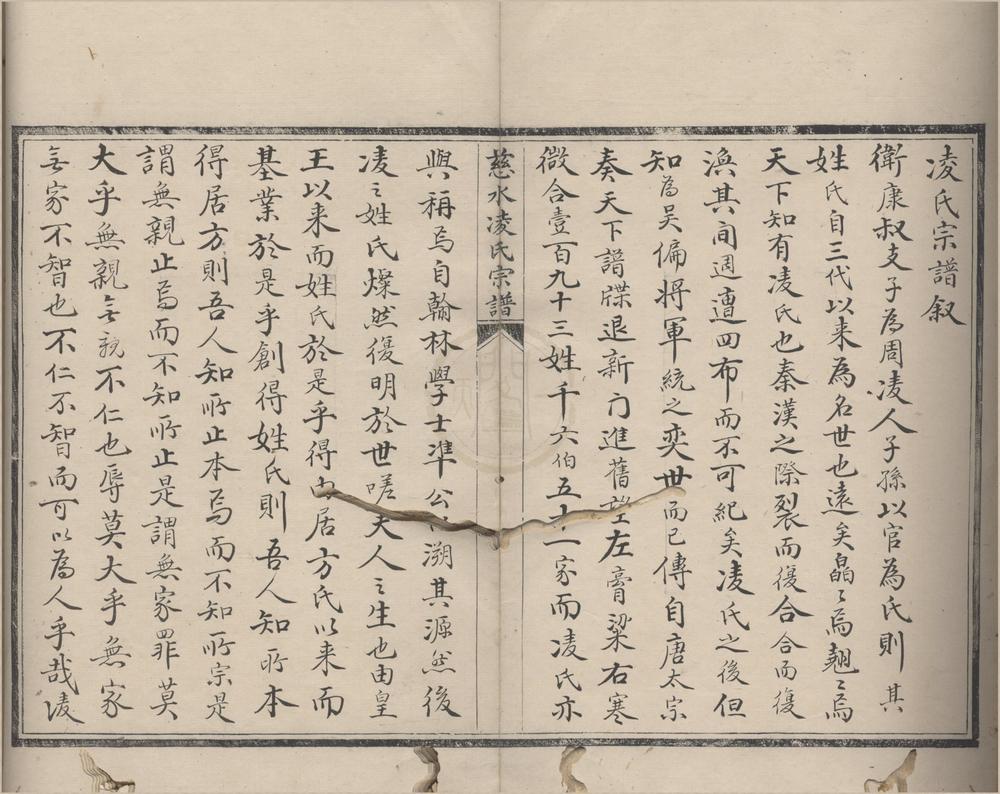 凌氏宗譜叙
衛康叔支子為周凌人子孫以官為氏則其
姓氏自三代以来為名世也遠矣晶〻焉翹〻焉
天下知有凌氏也秦漢之際裂而復合合而復
渙其間週遭四布而不可紀矣凌氏之後但
知為吴偏将軍統之奕世而已傳自唐太宗
奏天下譜牒退新门進舊望左膏粱右寒
微合壹百九十三姓千六伯五十一家而凌氏亦
慈水凌氏宗譜
與稱焉自翰林學士凖公溯其源然後
凌之姓氏燦然復明於世嗟夫人之生也由皇
王以来而姓氏於是乎得居方氏以来而
基業於是乎創得姓氏則吾人知所本
得居方則吾人知所止本焉而不知所宗是
謂無親止焉而不知所止是謂無家罪莫
大乎無親无親不仁也辱莫大乎無家
无家不智也不仁不智而可以為人乎哉凌